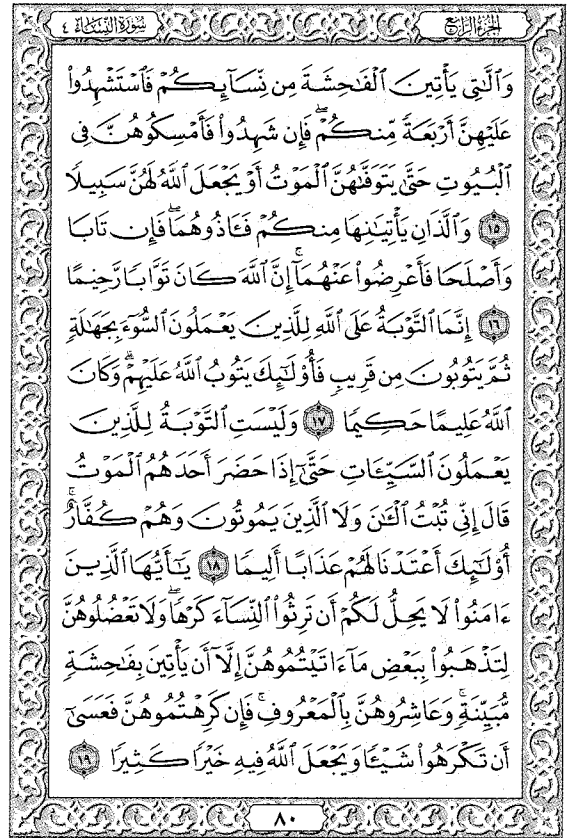 الجزء الرابع
سورة النساء ٤
وَٱلَّٰتِى يَأْتِينَ ٱلْفَٰحِشَةَ مِن نِّسَآئِكُمْ فَٱسْتَشْهِدُوا۟
عَلَيْهِنَّ أَرْبَعَةً مِّنكُمْ ۖ فَإِن شَهِدُوا۟ فَأَمْسِكُوهُنَّ فِى
ٱلْبُيُوتِ حَتَّىٰ يَتَوَفَّىٰهُنَّ ٱلْمَوْتُ أَوْ يَجْعَلَ ٱللَّهُ لَهُنَّ سَبِيلًا
١٥ وَٱلَّذَانِ يَأْتِيَٰنِهَا مِنكُمْ فَـَٔاذُوهُمَا ۖ فَإِن تَابَا
وَأَصْلَحَا فَأَعْرِضُوا۟ عَنْهُمَآ ۗ إِنَّ ٱللَّهَ كَانَ تَوَّابًا رَّحِيمًا
١٦ إِنَّمَا ٱلتَّوْبَةُ عَلَى ٱللَّهِ لِلَّذِينَ يَعْمَلُونَ ٱلسُّوٓءَ بِجَهَٰلَةٍ
ثُمَّ يَتُوبُونَ مِن قَرِيبٍ فَأُو۟لَٰٓئِكَ يَتُوبُ ٱللَّهُ عَلَيْهِمْ ۗ وَكَانَ
ٱللَّهُ عَلِيمًا حَكِيمًا ١٧ وَلَيْسَتِ ٱلتَّوْبَةُ لِلَّذِينَ
يَعْمَلُونَ ٱلسَّيِّـَٔاتِ حَتَّىٰٓ إِذَا حَضَرَ أَحَدَهُمُ ٱلْمَوْتُ
قَالَ إِنِّى تُبْتُ ٱلْـَٰٔنَ وَلَا ٱلَّذِينَ يَمُوتُونَ وَهُمْ كُفَّارٌ ۚ
أُو۟لَٰٓئِكَ أَعْتَدْنَا لَهُمْ عَذَابًا أَلِيمًا ١٨ يَٰٓأَيُّهَا ٱلَّذِينَ
ءَامَنُوا۟ لَا يَحِلُّ لَكُمْ أَن تَرِثُوا۟ ٱلنِّسَآءَ كَرْهًا ۖ وَلَا تَعْضُلُوهُنَّ
لِتَذْهَبُوا۟ بِبَعْضِ مَآ ءَاتَيْتُمُوهُنَّ إِلَّآ أَن يَأْتِينَ بِفَٰحِشَةٍ
مُّبَيِّنَةٍ ۚ وَعَاشِرُوهُنَّ بِٱلْمَعْرُوفِ ۚ فَإِن كَرِهْتُمُوهُنَّ فَعَسَىٰٓ
أَن تَكْرَهُوا۟ شَيْـًٔا وَيَجْعَلَ ٱللَّهُ فِيهِ خَيْرًا كَثِيرًا ١٩
٨٠